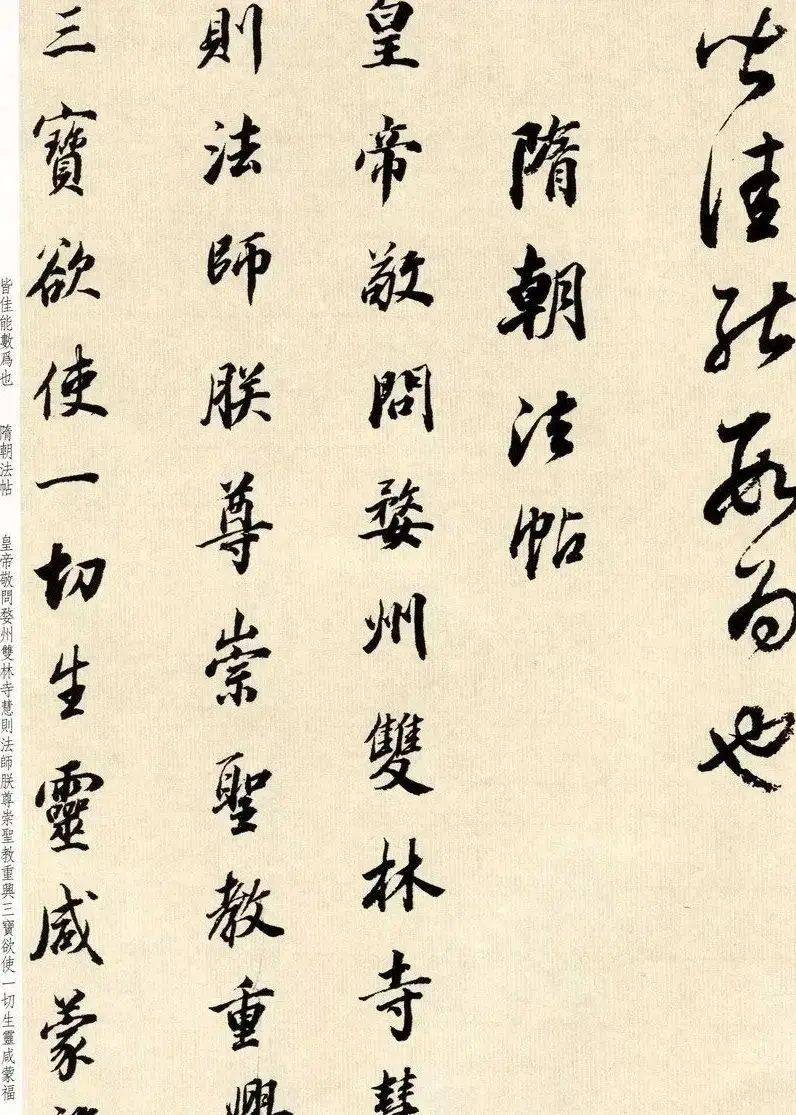 皆佳能數爲也
隋朝法帖
皇帝敬問婺州雙林寺慧
則法師朕尊崇聖教重興
三寶欲使一切生靈咸蒙福
皆佳能數爲也 隋朝法帖 皇帝敬問婺州雙林寺慧則法師朕尊崇聖教重興三寶欲使一切生靈咸蒙福